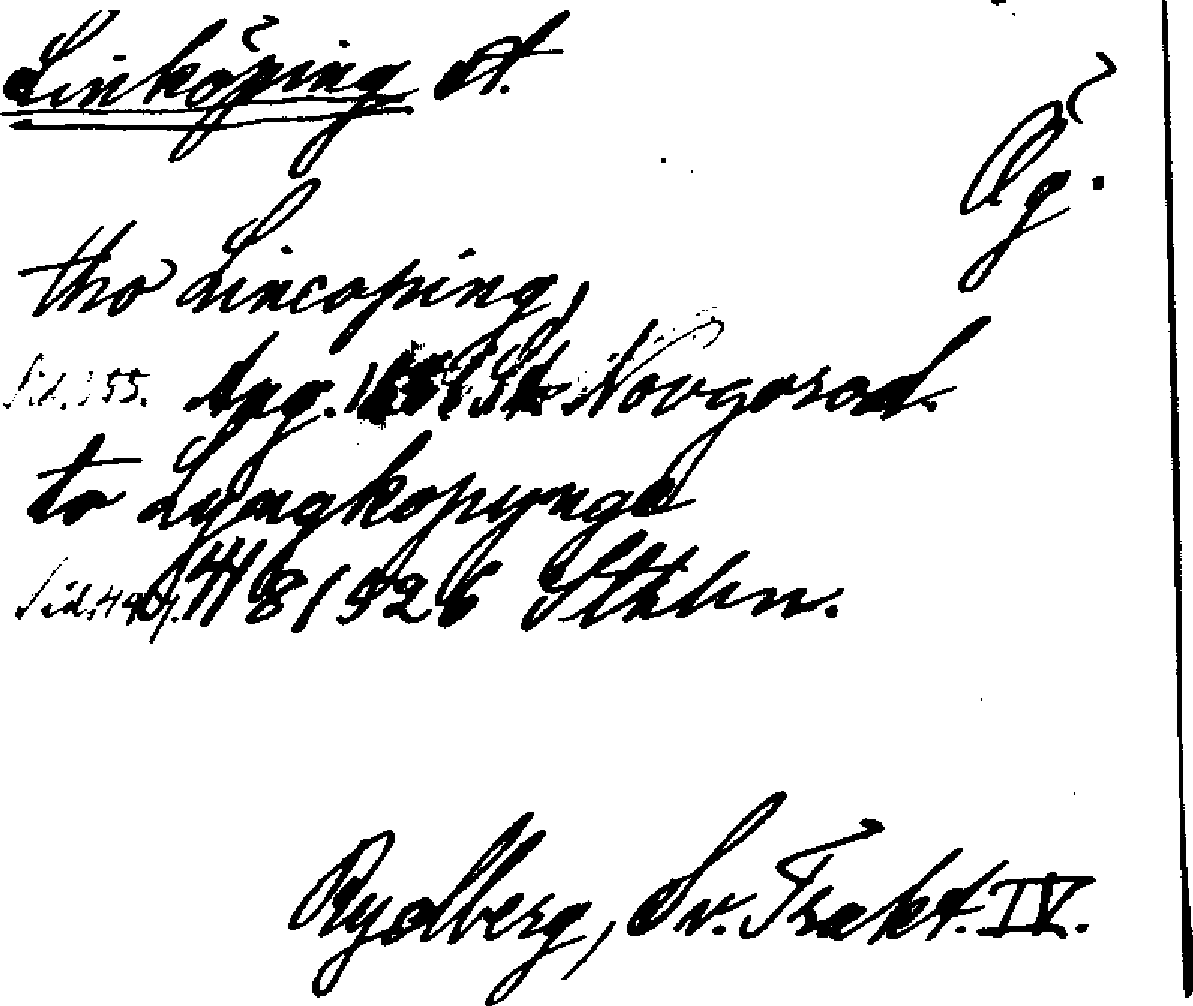 Linköping st.
Ög.
tho Lincoping,
Sid. 355. Apg. Novgorod.
to Lyngkopynge
8 1526 Sthlm.
Rydberg, Sv. Trakt. IV.